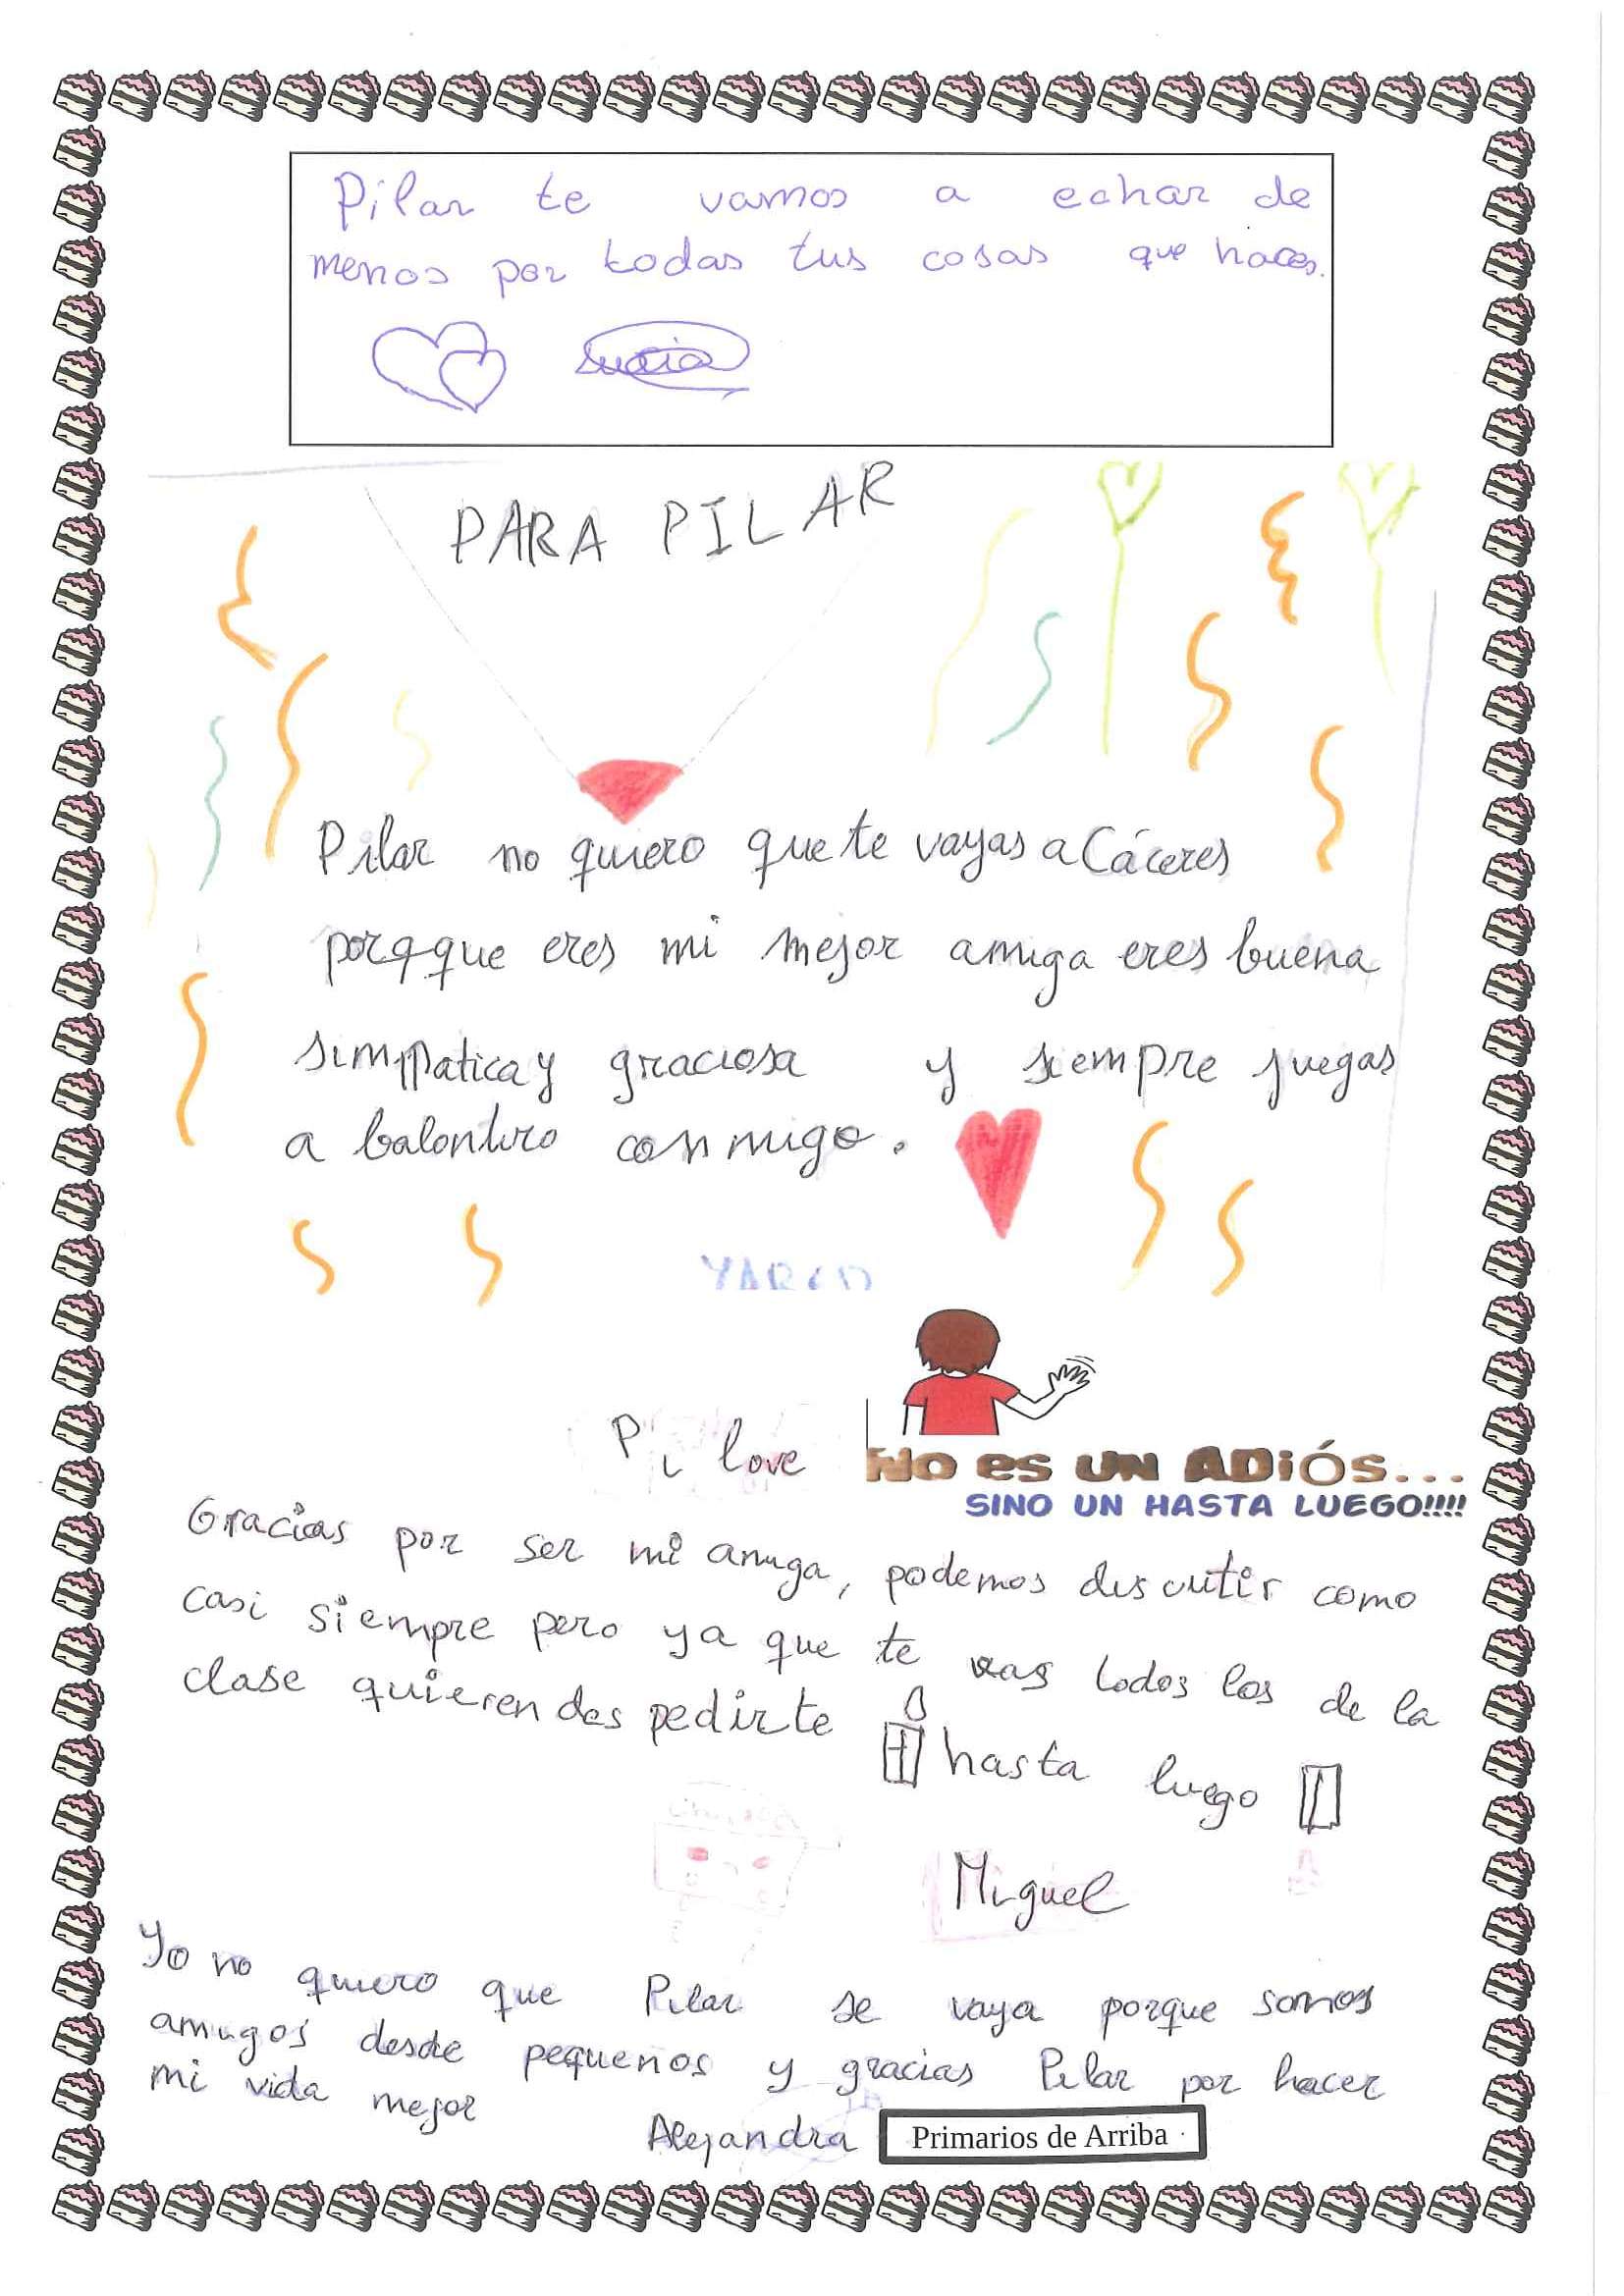 Pilar te vamos a echar de
menos por todas tus cosas que haces.
Lucía
PARA PILAR
Pilar no quiero que te vayas a Cáceres
porqque eres mi mejor amiga eres buena
simpatica y graciosa y siempre juegas
a balontiro conmigo.
Pi love
NO ES UN ADIÓS...
SINO UN HASTA LUEGO!!!!
Gracias por ser mi amiga, podemos discutir como
casi siempre pero ya que te vas todos los de la
clase quieren des pedirte
hasta luego
Miguel
Yo no quiero que Pilar se vaya porque somos
amigos desde pequeños y gracias Pilar por hacer
mi vida mejor
Alejandra
Primarios de Arriba